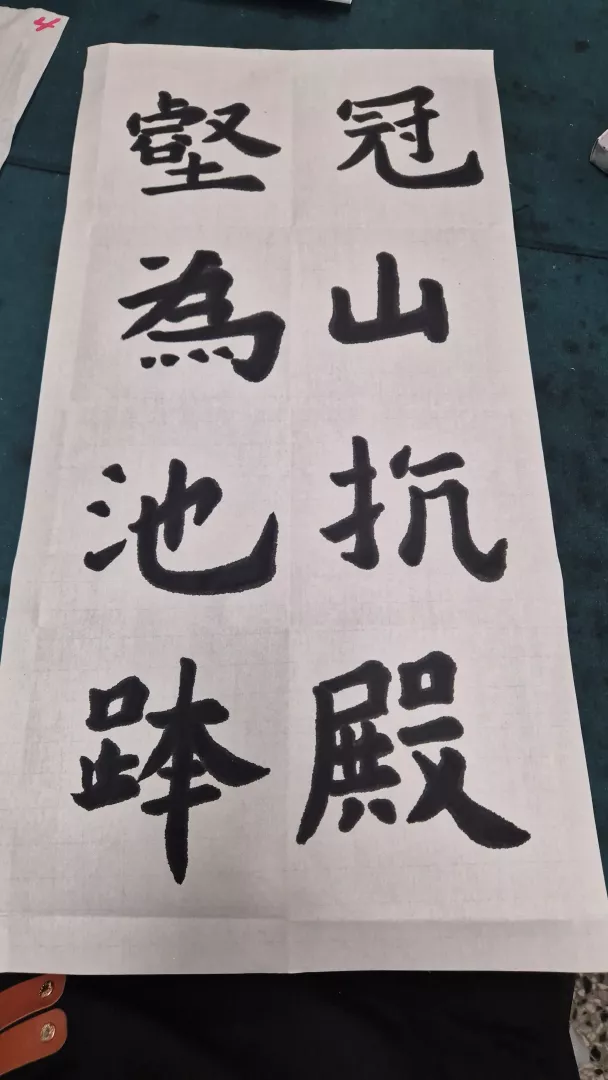 冠山抗殿
壑為池跨